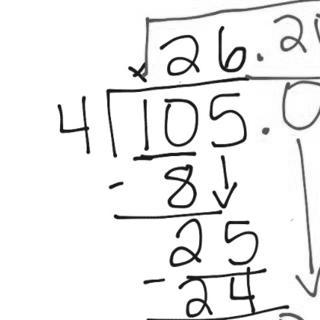 x 26.2
4 105.0
- 8
25
- 24